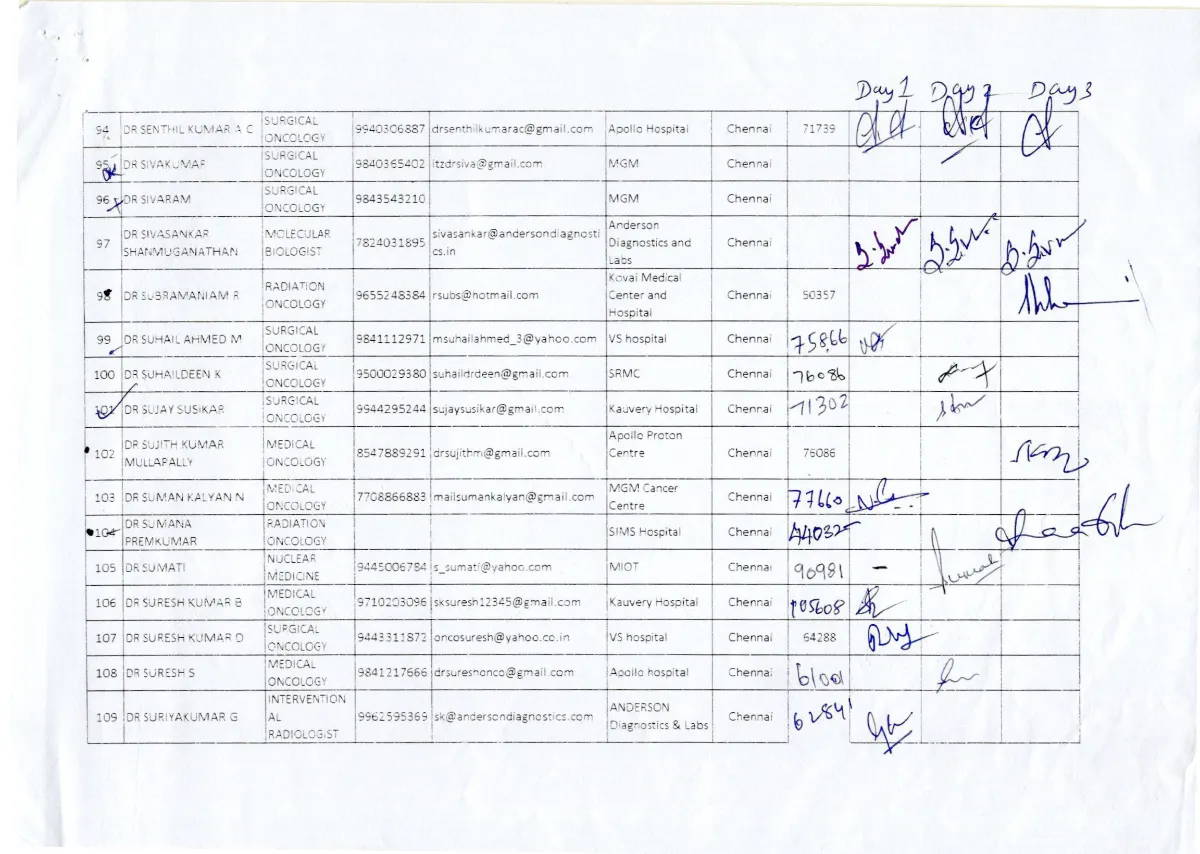 Day 1 Day 2 Day 3
94 DR SENTHIL KUMAR A C SURGICAL ONCOLOGY 9940306887 drsenthilkumarac@gmail.com Apollo Hospital Chennai 71739
95 DR SIVAKUMAR SURGICAL ONCOLOGY 9840365402 itzdrsiva@gmail.com MGM Chennai
96 DR SIVARAM SURGICAL ONCOLOGY 9843543210 MGM Chennai
97 DR SIVASANKAR SHANMUGANATHAN MOLECULAR BIOLOGIST 7824031895 sivasankar@andersondiagnostics.in Anderson Diagnostics and Labs Chennai
98 DR SUBRAMANIAM R RADIATION ONCOLOGY 9655248384 rsubs@hotmail.com Kovai Medical Center and Hospital Chennai 50357
99 DR SUHAIL AHMED M SURGICAL ONCOLOGY 9841112971 msuhailahmed_3@yahoo.com VS hospital Chennai 75866
100 DR SUHAILDEEN K SURGICAL ONCOLOGY 9500029380 suhaildrdeen@gmail.com SRMC Chennai 76086
101 DR SUJAY SUSIKAR SURGICAL ONCOLOGY 9944295244 sujaysusikar@gmail.com Kauvery Hospital Chennai 71302
102 DR SUJITH KUMAR MULLAPALLY MEDICAL ONCOLOGY 8547889291 drsujithm@gmail.com Apollo Proton Centre Chennai 76086
103 DR SUMAN KALYAN N MEDICAL ONCOLOGY 7708866883 mailsumankalyan@gmail.com MGM Cancer Centre Chennai 77660
104 DR SUMANA PREMKUMAR RADIATION ONCOLOGY SIMS Hospital Chennai 44032
105 DR SUMATI NUCLEAR MEDICINE 9445006784 s_sumati@yahoo.com MIOT Chennai 90981 –
106 DR SURESH KUMAR B MEDICAL ONCOLOGY 9710203096 sksuresh12345@gmail.com Kauvery Hospital Chennai 105608
107 DR SURESH KUMAR D SURGICAL ONCOLOGY 9443311872 oncosuresh@yahoo.co.in VS hospital Chennai 64288
108 DR SURESH S MEDICAL ONCOLOGY 9841217666 drsureshonco@gmail.com Apollo hospital Chennai 61001
109 DR SURIYAKUMAR G INTERVENTIONAL RADIOLOGIST 9962595369 sk@andersondiagnostics.com ANDERSON Diagnostics & Labs Chennai 62841